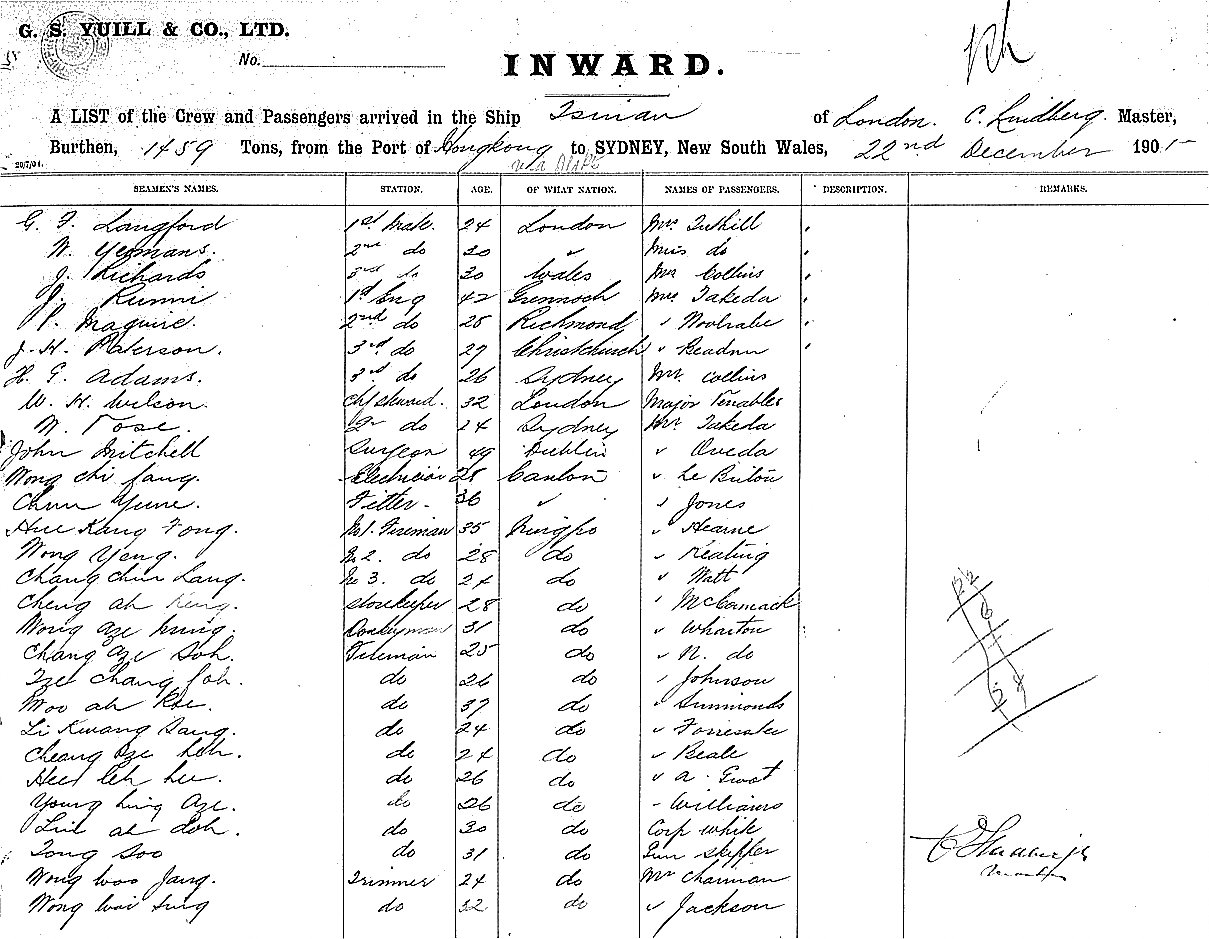 G. S. YUILL & CO., LTD.
No.
INWARD.
A LIST of the Crew and Passengers arrived in the Ship Tsinan of London. C. Lindberg. Master,
Burthen, 1459 Tons, from the Port of Hongkong to SYDNEY, New South Wales, 22nd December 1901
20/7/01.
SEAMEN'S NAMES. STATION. AGE. OF WHAT NATION. NAMES OF PASSENGERS. DESCRIPTION. REMARKS.
G. F. Langford 1st Mate. 24 London Mrs Tuthill
W. Yeomans. 2nd do 30 " Miss do
J. Richards 3rd do 30 Wales Mrs Collins
J. 1st Eng 42 Mrs Takeda
P. Maguire. 2nd do 28 Richmond "
J. H. Paterson. 3rd do 29 Christchurch "
H. G. Adams. 3rd do 26 Sydney Mr. Collins
W. H. Wilson. Chf steward. 32 London Major Venables
N. Tose. 2nd do 24 Sydney Mr Takeda
John Mitchell Surgeon 49 Dublin "
Wong Chi fang. Electrician 28 Canton " Le Briton
Chun Yune. Fitter. 36 " " Jones
Hue Kang Fong. No 1. Fireman 35 Ningpo " Hearne
Wong Yeng. No 2. do 28 do " Keating
Chang Chun Lang. No 3. do 24 do " Watt
Cheng ah Storekeeper 28 do " McCormack
Wong aze 31 do " Wharton
Chang aze Soh. Fireman 25 do " N. do
Tze Chang foh. do 26 do " Johnson
Woo ah Koe. do 37 do " Simmonds
Li Kwang Sang. do 24 do "
Cheang aze hoh. do 24 do " Beale
leh do 26 do " A.
Young hing aze. do 26 do " Williams
ah doh. do 30 do Corp White
Tong Soo do 31 do Gun Skipper
Wong woo Jang. Trimmer 24 do Mr Chairman
Wong wai do 32 do " Jackson